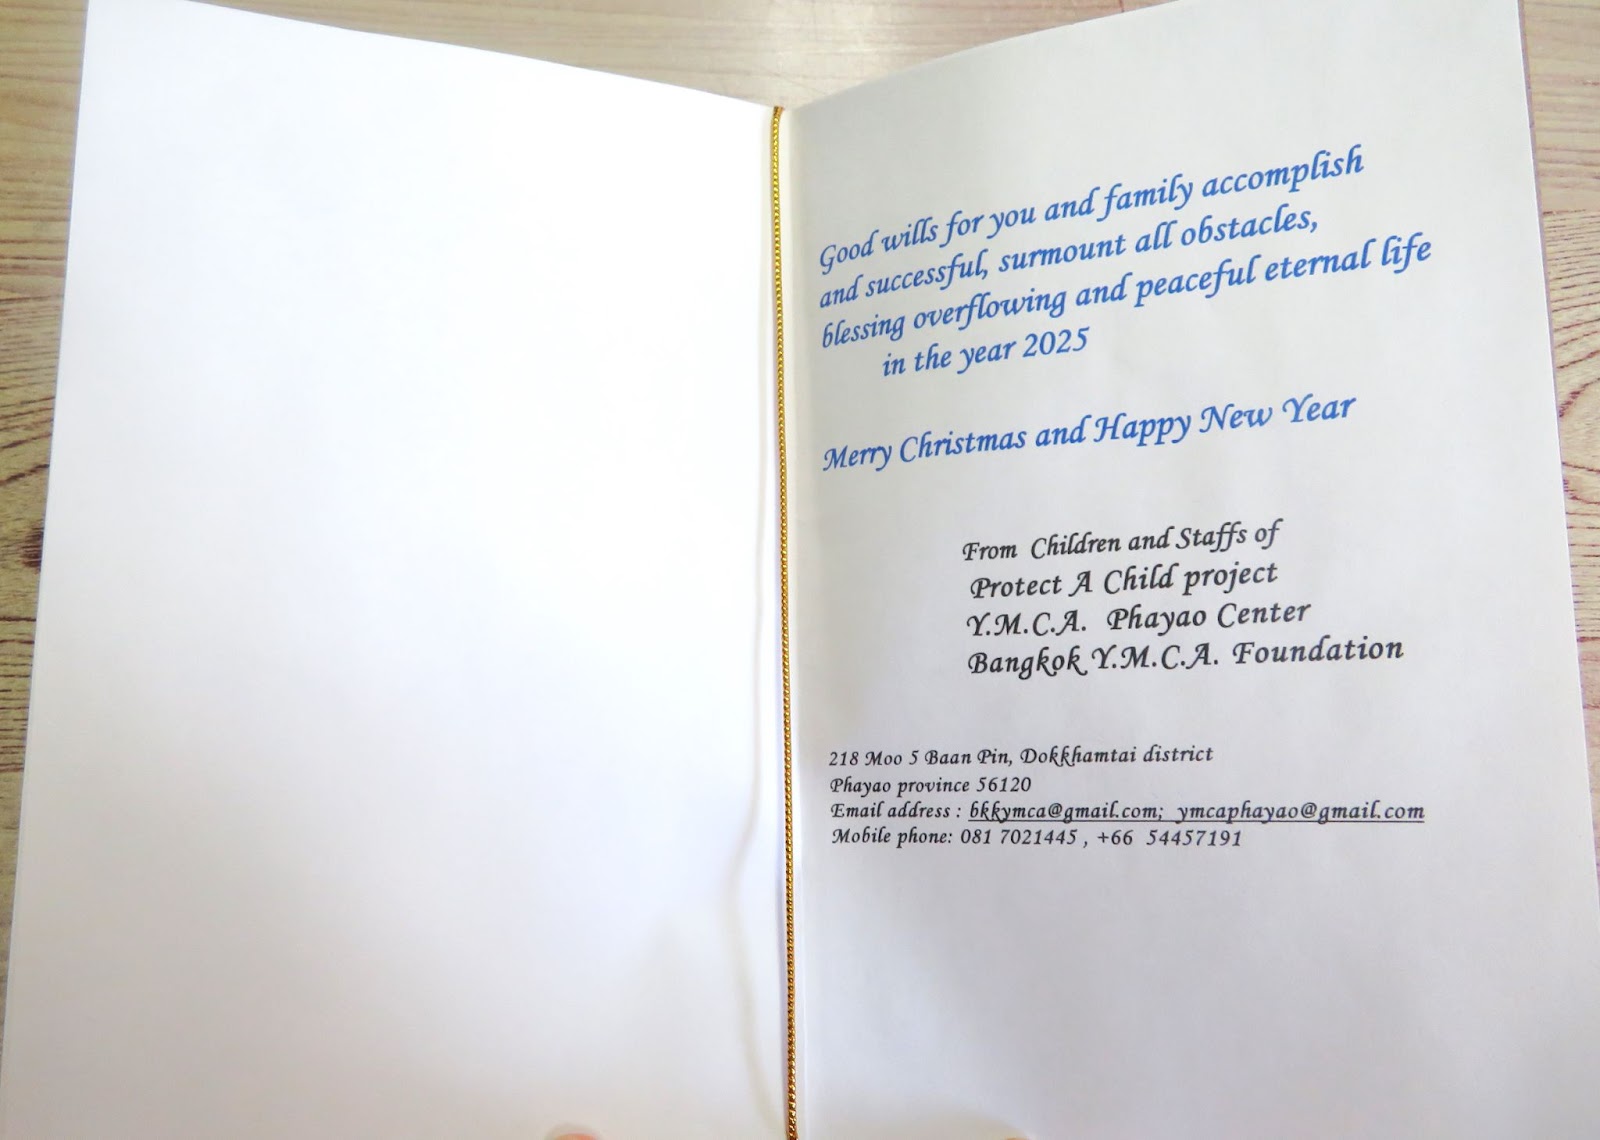 Good wills for you and family accomplish
and successful, surmount all obstacles,
blessing overflowing and peaceful eternal life
in the year 2025
Merry Christmas and Happy New Year
From Children and Staffs of
Protect A Child project
Y.M.C.A. Phayao Center
Bangkok Y.M.C.A. Foundation
218 Moo 5 Baan Pin, Dokkhamtai district
Phayao province 56120
Email address : bkkymca@gmail.com; ymcaphayao@gmail.com
Mobile phone: 081 7021445 , +66 54457191